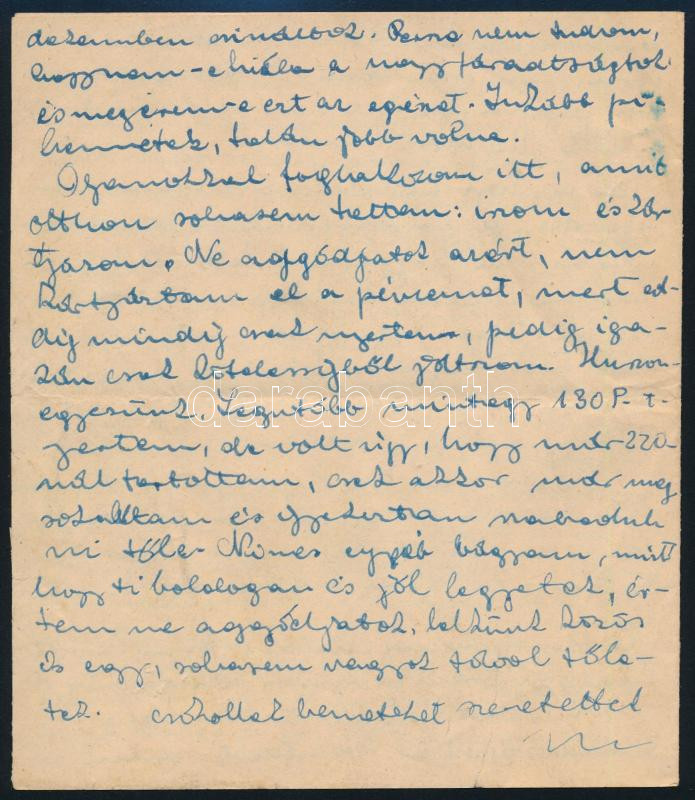 decemben csináltok. Persze nem tudom,
hogy nem-e hiába a nagy fáradtságtok
és megérem-e ezt az egészet. Inkább pi-
hennétek, talán jobb volna.
Olyanokkal foglalkozom itt, amit
otthon sohasem tettem: írom és kár-
tyázom. Ne aggódjatok azért, nem
kártyáztam el a pénzemet, mert ed-
dig mindig csak nyertem, pedig iga-
zán csak kötelességből játszom. Huszon-
egyezünk. Legutóbb mintegy 130 P-t
nyertem, de volt úgy, hogy már 220-
nál tartottam, csak akkor már meg
sokaltam és igyekeztem szabadul-
ni tőle. Nincs egyéb vágyam, mint
hogy ti boldogan és jól legyetek, ér-
tem ne aggódjatok, lelkünk közös
és egy, sohasem vagyok távol tőle-
tek. csókollak benneteket szeretettel
darabanth